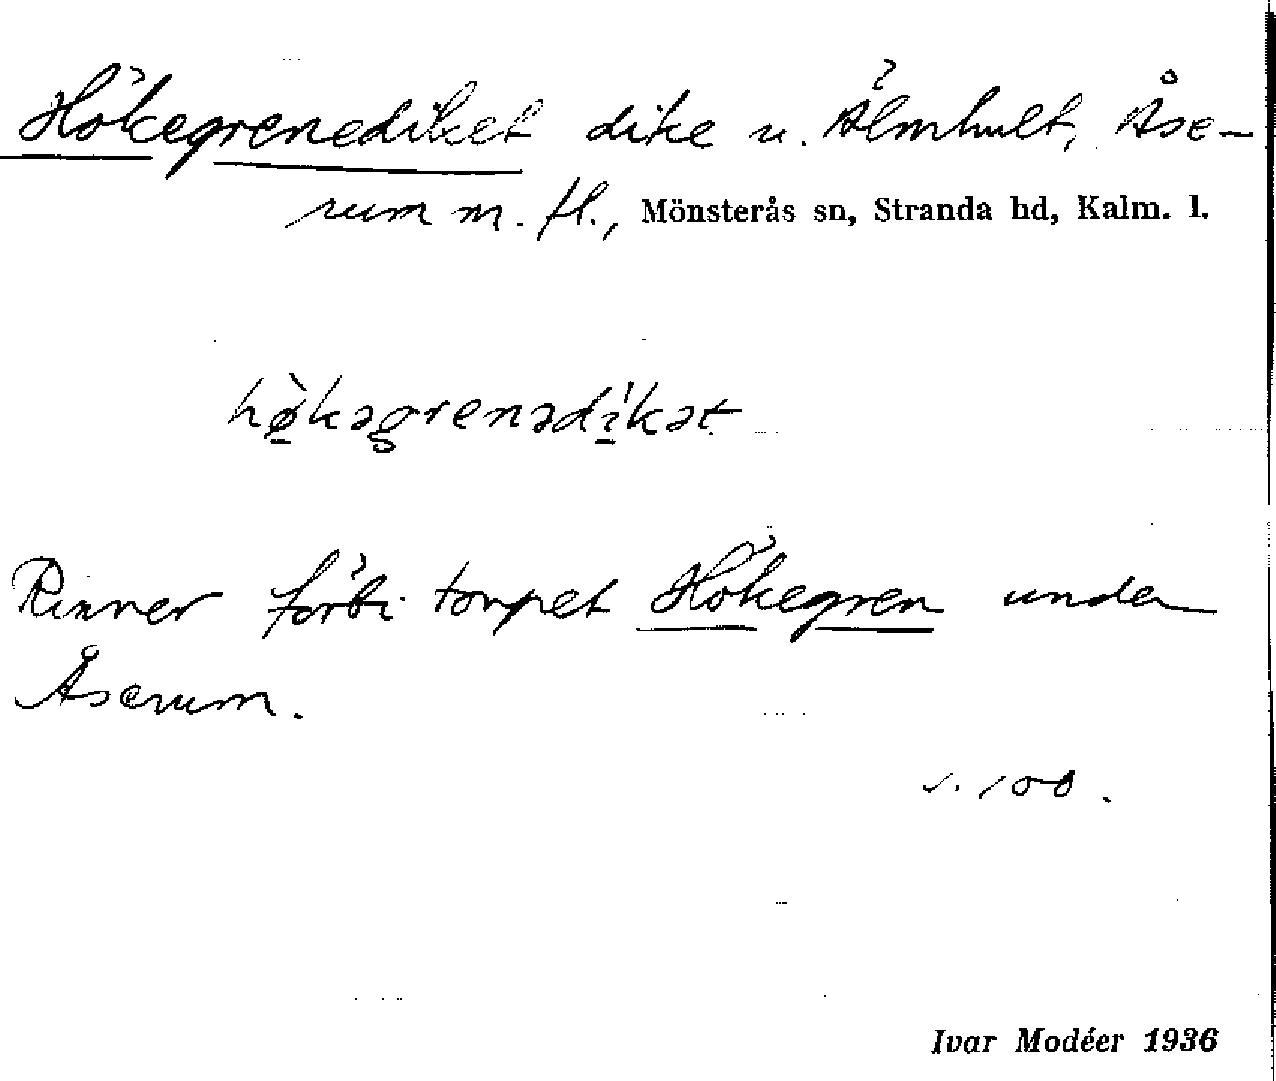 Hökegrenediket dike u. Älmhult, Åse-
rum m. fl., Mönsterås sn, Stranda hd, Kalm. l.
hø̀kagrenədíkət
Rinner förbi torpet Hökegren under
Åserum.
s. 100.
Ivar Modéer 1936